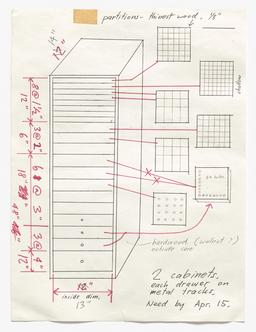 partitions - thinnest wood. 1/8"
14"
8 @ 1 1/2"
12"
3 @ 2"
6"
shallow
6 @ 3"
18"
48"
3 @ 4"
12"
hardwood (walnut?)
outside case
12"
inside dim.
13"
2 cabinets.
each drawer on
metal tracks.
Need by Apr. 15.